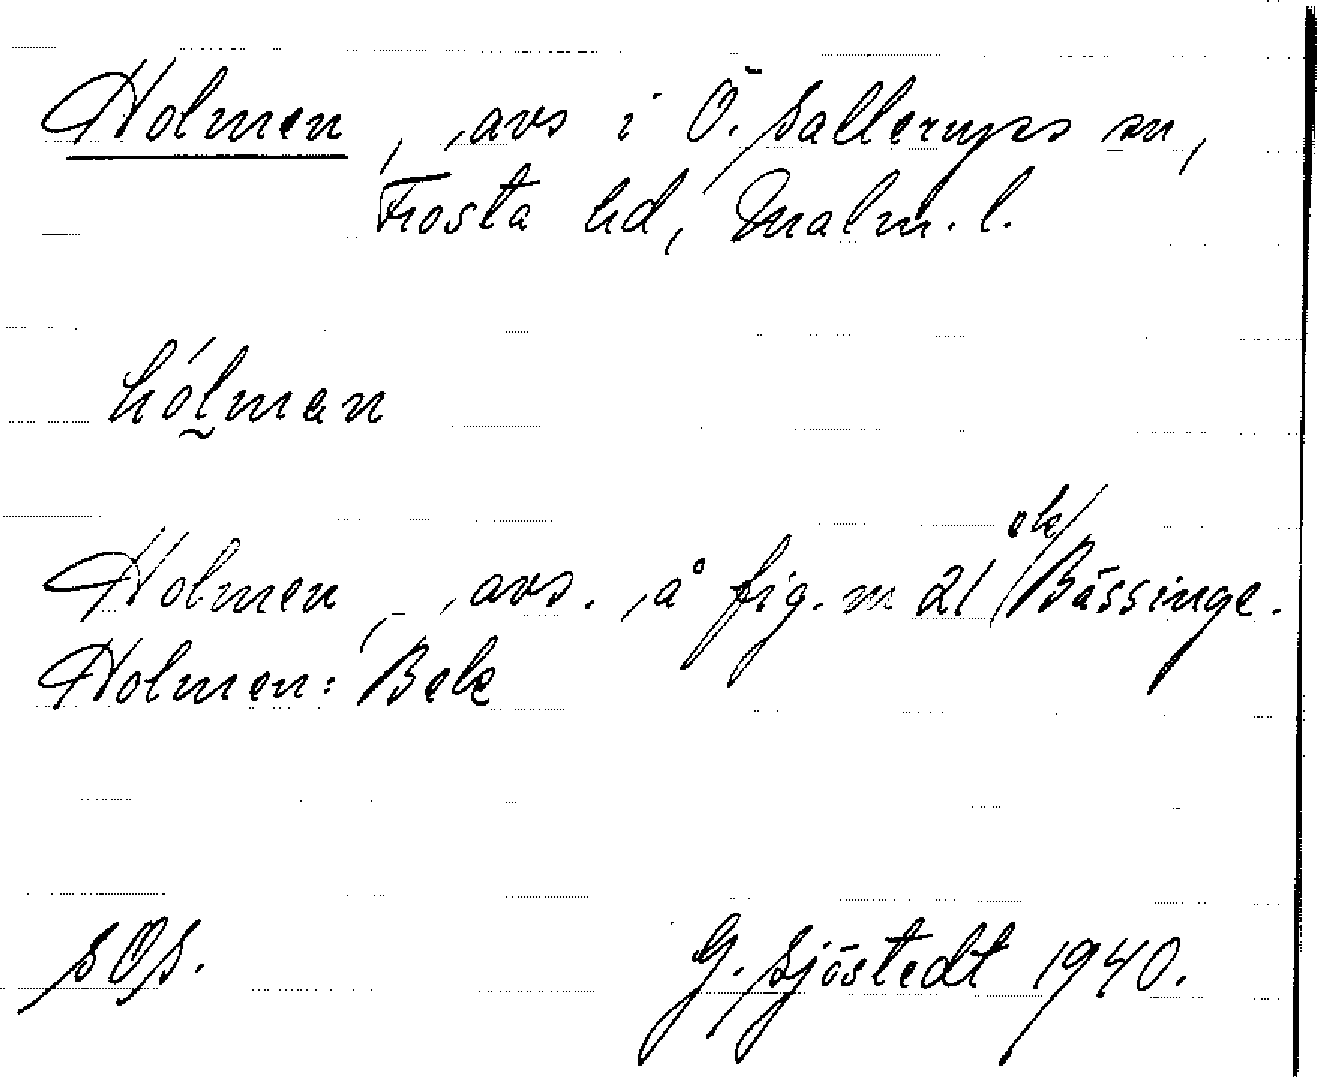 Holmen, avs i Ö. Sallerups sn,
Frosta hd, Malm. l.
hólman
Holmen, avs. å fig. m 21 ek/Bässinge.
Holmen: Bek
SOS.
G. Sjöstedt 1940.